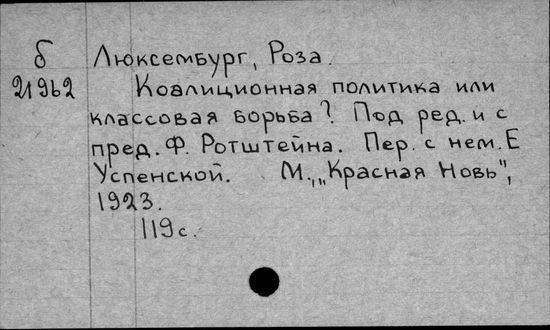 б Люксембург, Роза.
21962 Коалиционная политика или
классовая борьба? Под ред. и с
пред. Ф. Ротштейна. Пер. с нем. Е
Успенской. М., „Красная Новь",
1923.
119 с.